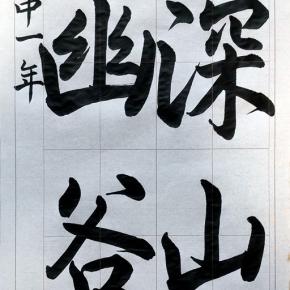 深山
幽谷
中一年